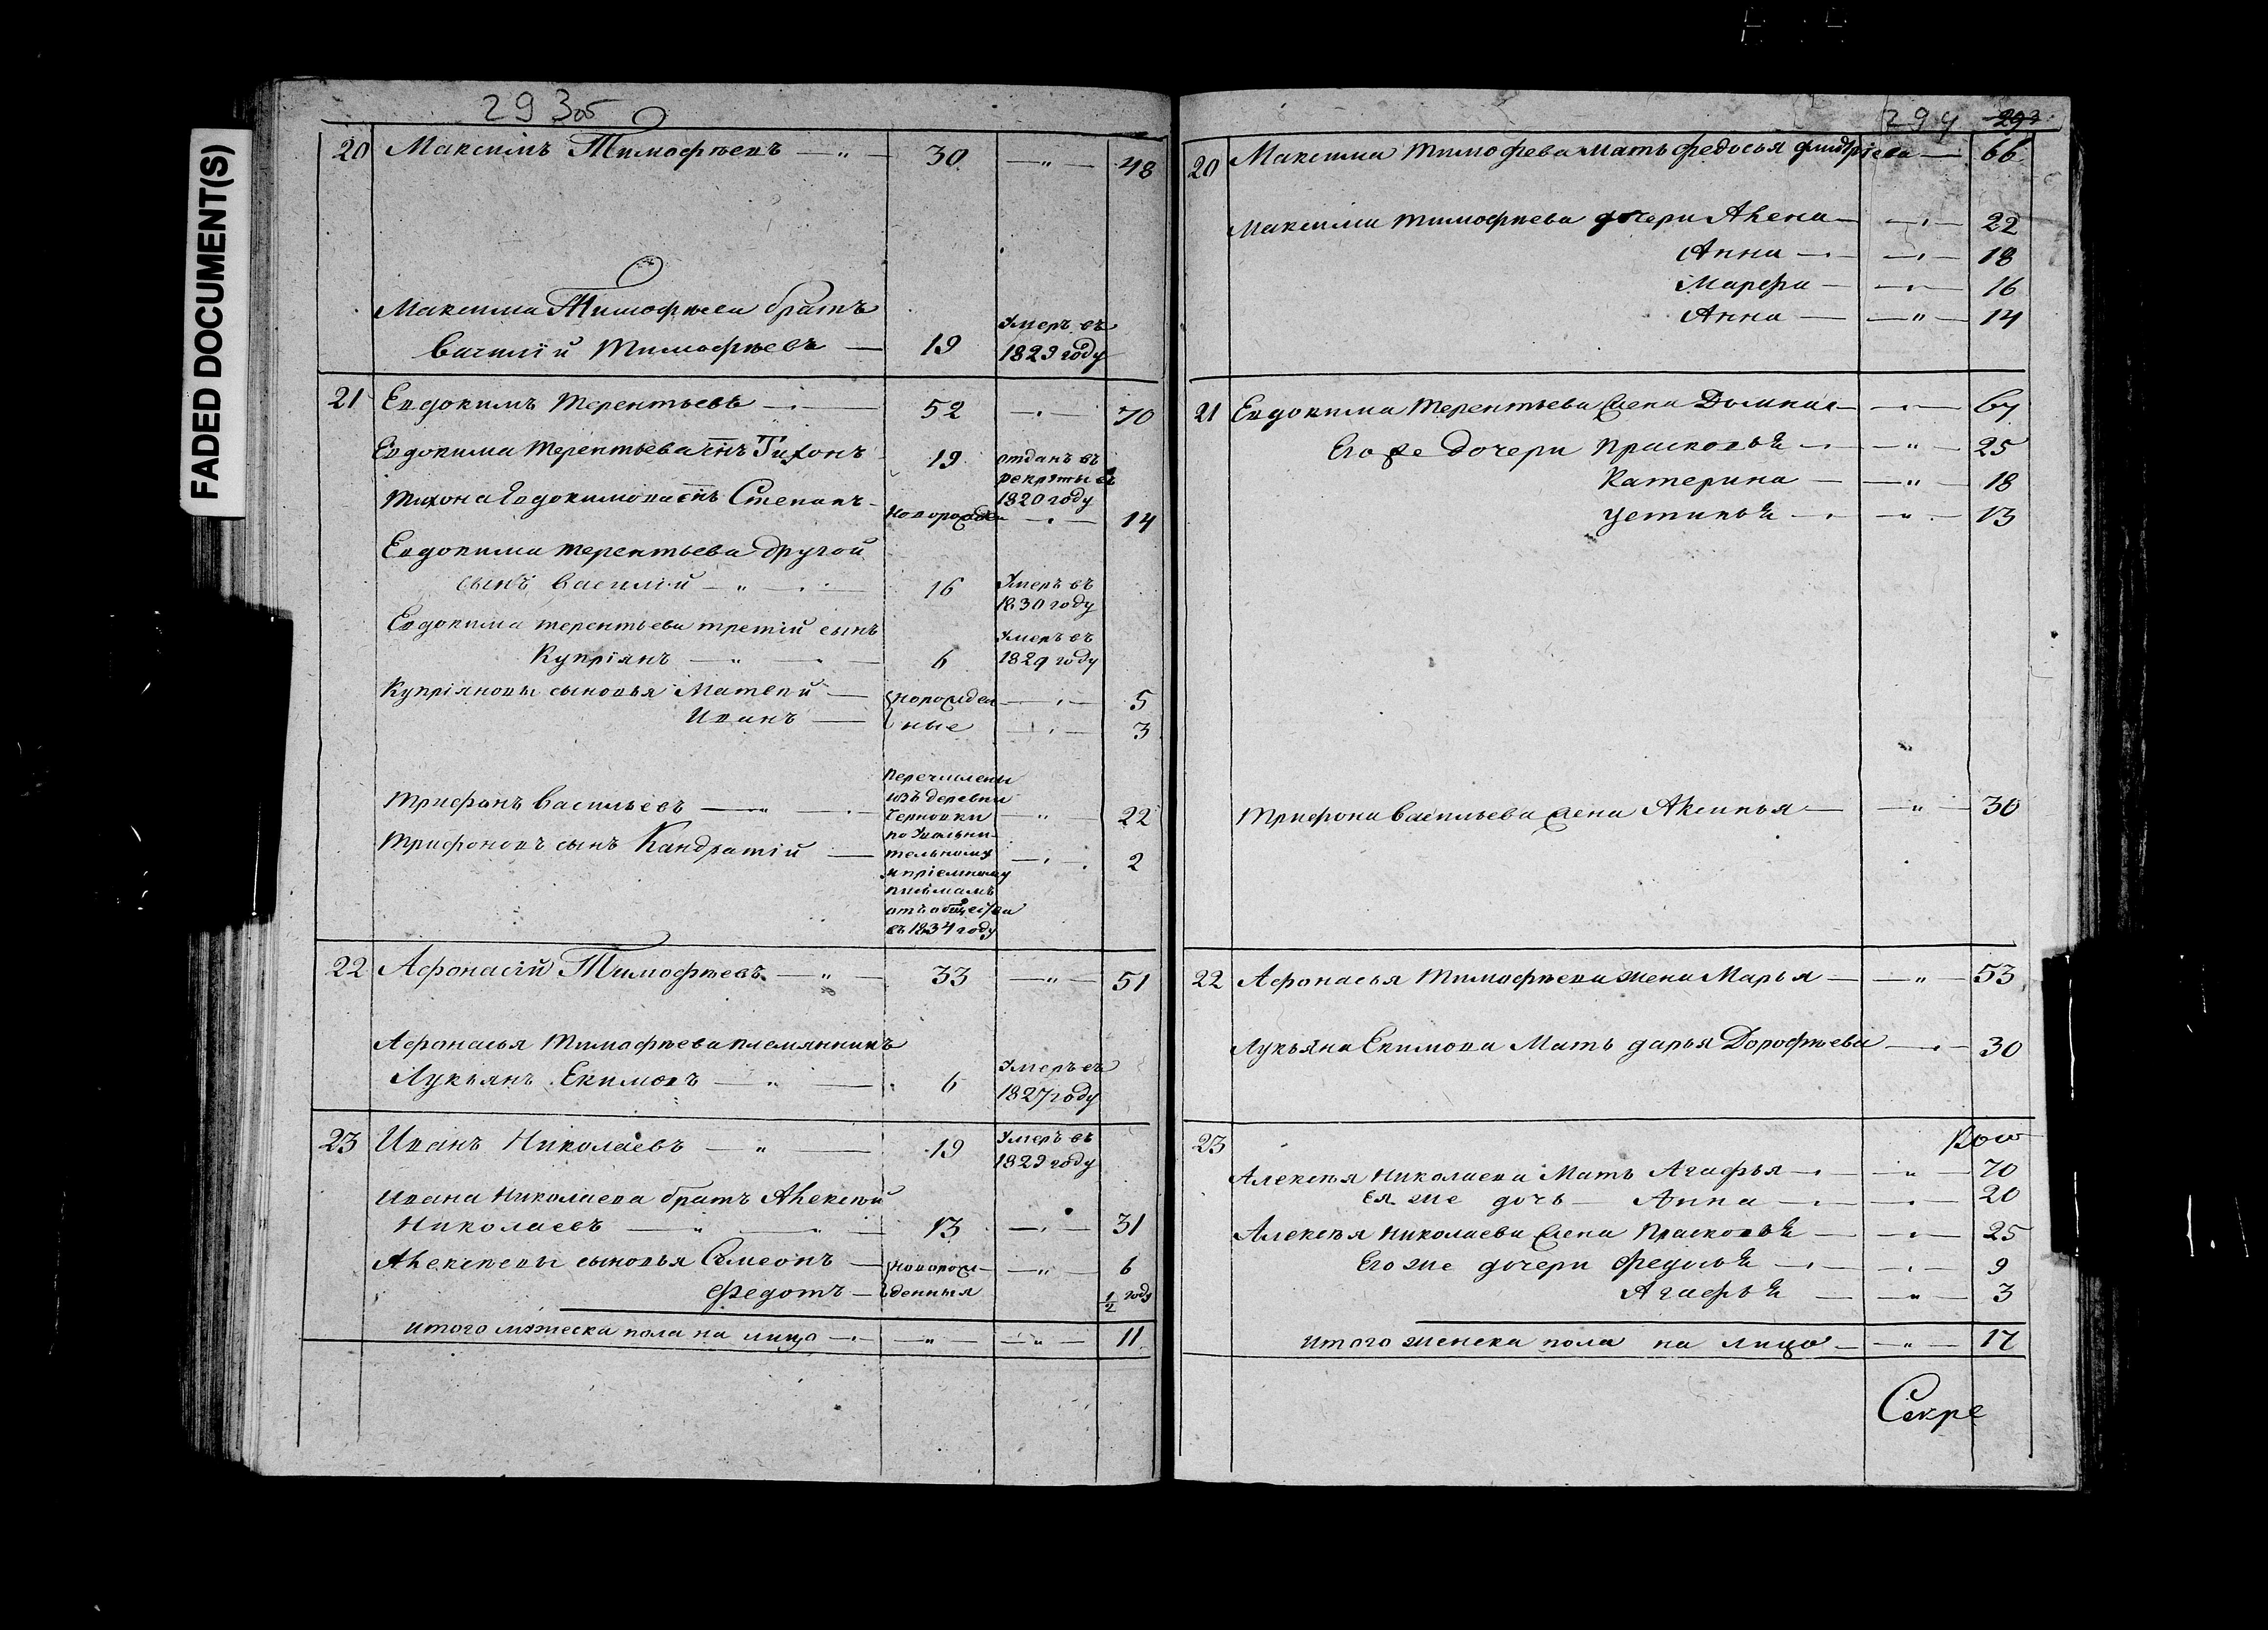 FADED DOCUMENT(S)
293об
20 Максимъ Тимофѣевъ — " — 30 — " — 48
Максима Тимофѣева братъ
Василій Тимофѣевъ — 19 умеръ въ 1829 году
21 Евдокимъ Терентьевъ — 52 — 70
Евдокима Терентьева сынъ Тихонъ 19 отданъ въ рекруты въ 1820 году
Тихона Евдокимова сынъ Степанъ — новорожден — 14
Евдокима Терентьева другой
сынъ Василій — " — 16 умеръ въ 1830 году
Евдокима Терентьева третій сынъ
Купріянъ — " — 6 умеръ въ 1829 году
Купріяновы сыновья Матвей — новорожден — 5
Иванъ — ные — 3
Трифонъ Васильевъ — " — 22
Трифоновъ сынъ Кандратій — 2
перечислены
изъ деревни
Черновки
по увольни-
тельному
и пріемному
письмамъ
отъ общества
въ 1834 году
22 Афонасій Тимофѣевъ — " — 33 — " — 51
Афонасья Тимофѣева племянникъ
Лукьянъ Екимовъ — " — 6 умеръ въ 1827 году
23 Иванъ Николаевъ — " — 19 умеръ въ 1829 году
Ивана Николаева братъ Алексѣй
Николаевъ — " — 13 — 31
Алексѣевы сыновья Семеонъ — новорож- — " — 6
Федотъ — денныя 1/2 году
Итого мужеска пола на лицо — " — " — 11
294 293
20 Максима Тимофева мать Федосья — 66
Максима Тимофѣева дочери Алена — 22
Анна — 18
Марфа — 16
Анна — " — 14
21 Евдокима Терентьева жена Домна — 67
Его же дочери Прасковья — " — 25
Катерина — " — 18
Устинья — " — 13
Трифона Васильева жена Аксинья — " — 30
22 Афонасья Тимофѣева жена Марья — " — 53
Лукьяна Екимова мать Дарья Дорофѣева — 30
23
Алексѣя Николаева мать Агафья — " — 70
Ея же дочь — Анна — 20
Алексѣя Николаева жена Прасковья — 25
Его же дочери Федосья — 9
Агафья — " — 3
Итого женска пола на лицо — " — 17
Секре